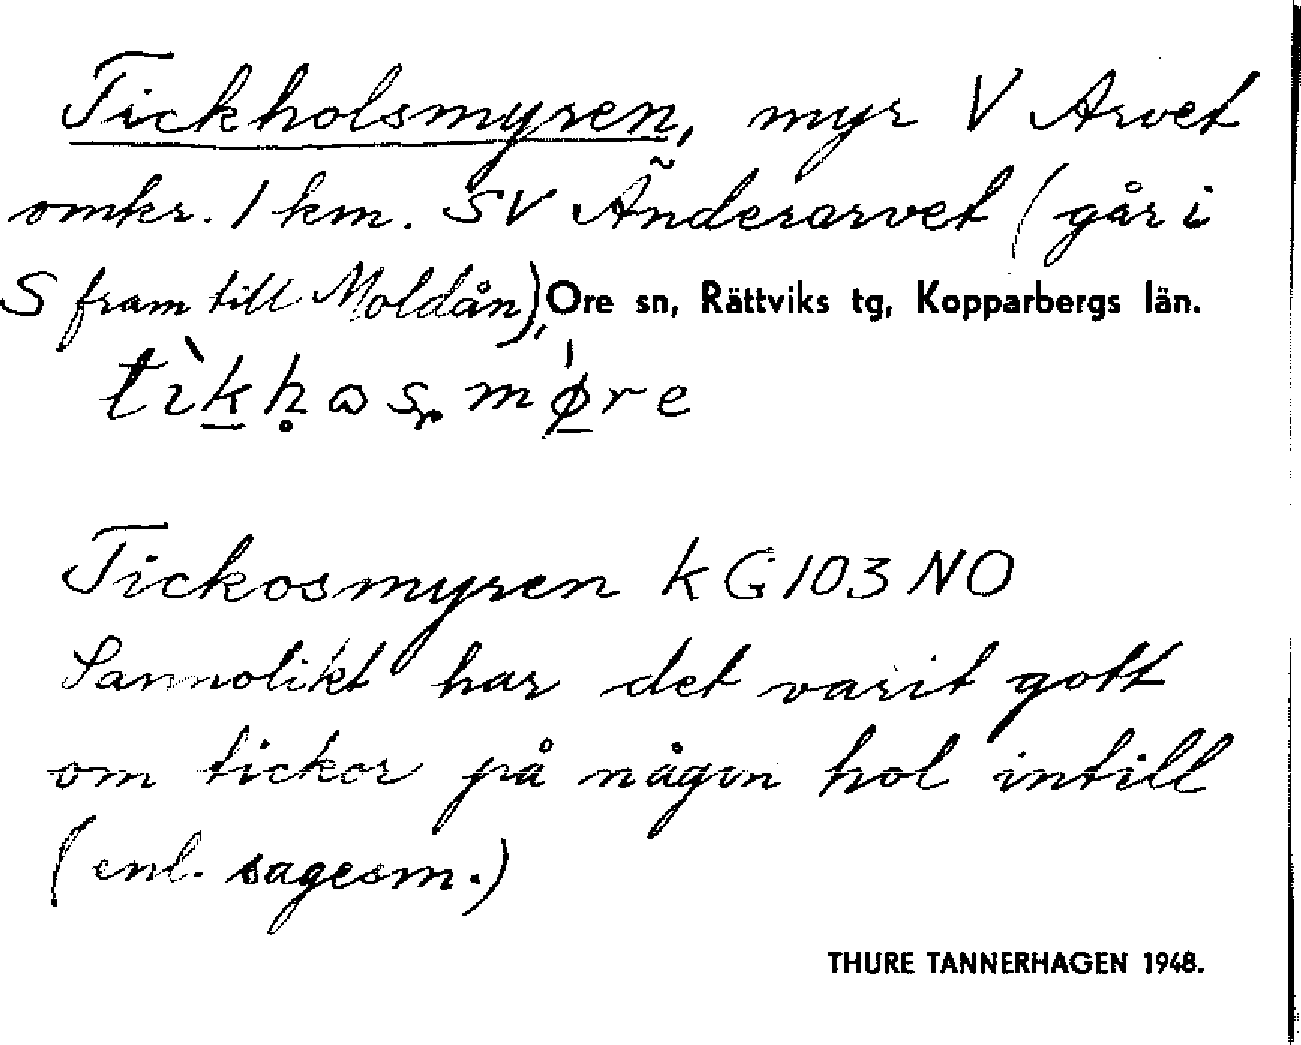 Tickholsmyren, myr V Arvet
omkr. 1 km. SV Änderarvet (går i
S fram till Moldån), Ore sn, Rättviks tg, Kopparbergs län.
Tickosmyren k G 103 NO
Sannolikt har det varit gott
om tickor på någon hol intill
(enl. sagesm.)
THURE TANNERHAGEN 1948.